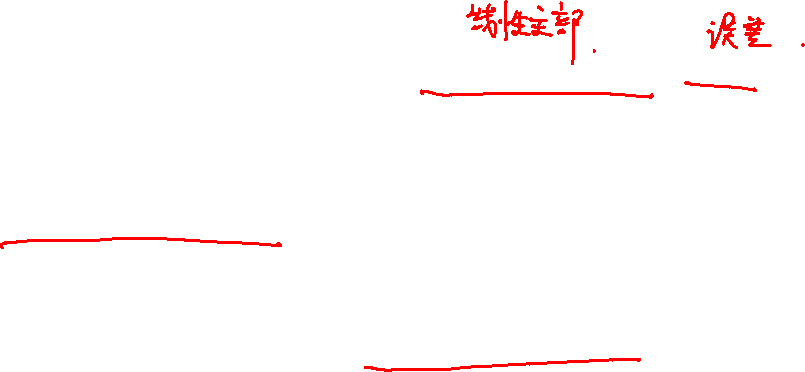 线性主部.
误差.